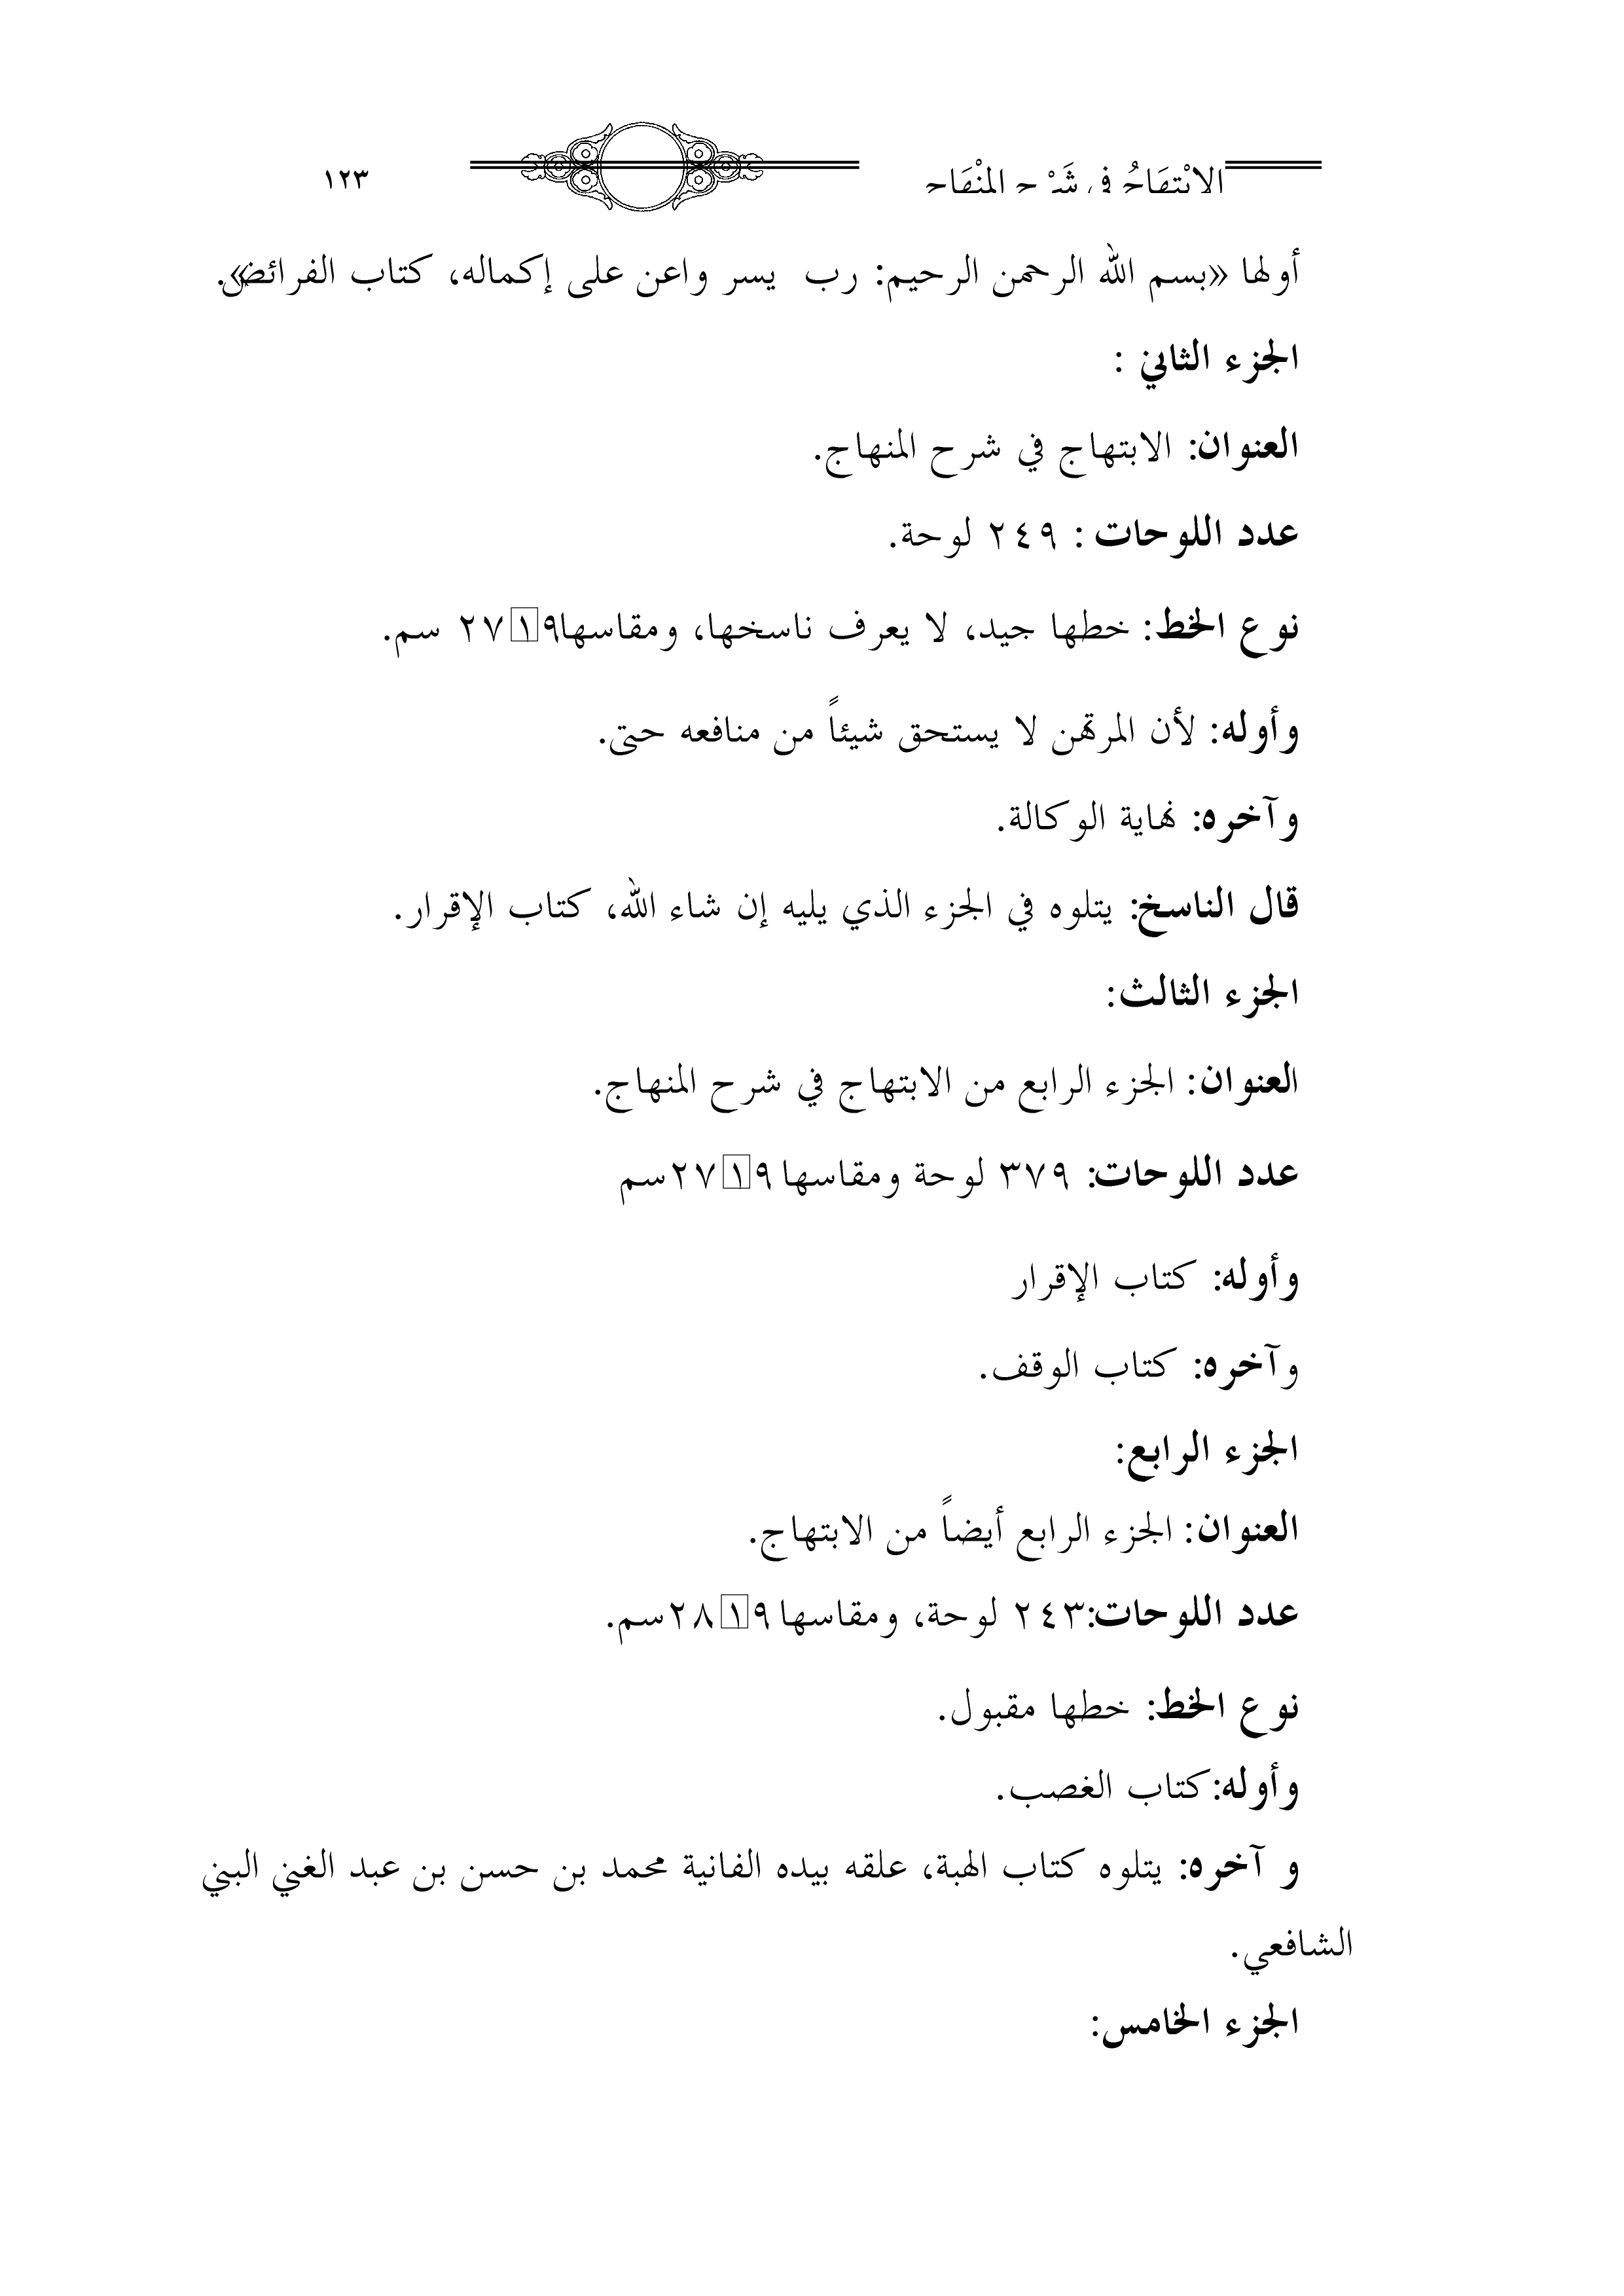 الابْتِهَاجُ في شَرْحِ المِنْهَاجِ
١٢٣
أولها «بسم الله الرحمن الرحيم: رب يسر واعن على إكماله، كتاب الفرائض».
الجزء الثاني :
العنوان: الابتهاج في شرح المنهاج.
عدد اللوحات : ٢٤٩ لوحة.
نوع الخط: خطها جيد، لا يعرف ناسخها، ومقاسها٢٧١٩ سم.
وأوله: لأن المرتهن لا يستحق شيئاً من منافعه حتى.
وآخره: نهاية الوكالة.
قال الناسخ: يتلوه في الجزء الذي يليه إن شاء الله، كتاب الإقرار.
الجزء الثالث:
العنوان: الجزء الرابع من الابتهاج في شرح المنهاج.
عدد اللوحات: ٣٧٩ لوحة ومقاسها ٢٧١٩سم
وأوله: كتاب الإقرار
وآخره: كتاب الوقف.
الجزء الرابع:
العنوان: الجزء الرابع أيضاً من الابتهاج.
عدد اللوحات:٢٤٣ لوحة، ومقاسها ٢٨١٩سم.
نوع الخط: خطها مقبول.
وأوله:كتاب الغصب.
و آخره: يتلوه كتاب الهبة، علقه بيده الفانية محمد بن حسن بن عبد الغني البني
الشافعي.
الجزء الخامس: